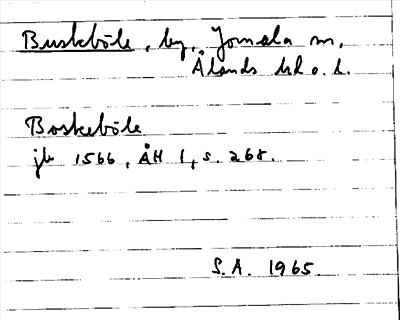 Buskböle, by, Jomala sn,
Ålands hd o. l.
Boskeböle
jb 1566, ÅH 1, s. 268.
S.A. 1965